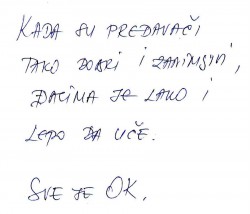 KADA SU PREDAVAČI
TAKO DOBRI I ZANIMLJIVI,
ĐACIMA JE LAKO I
LEPO DA UČE.
SVE JE OK.